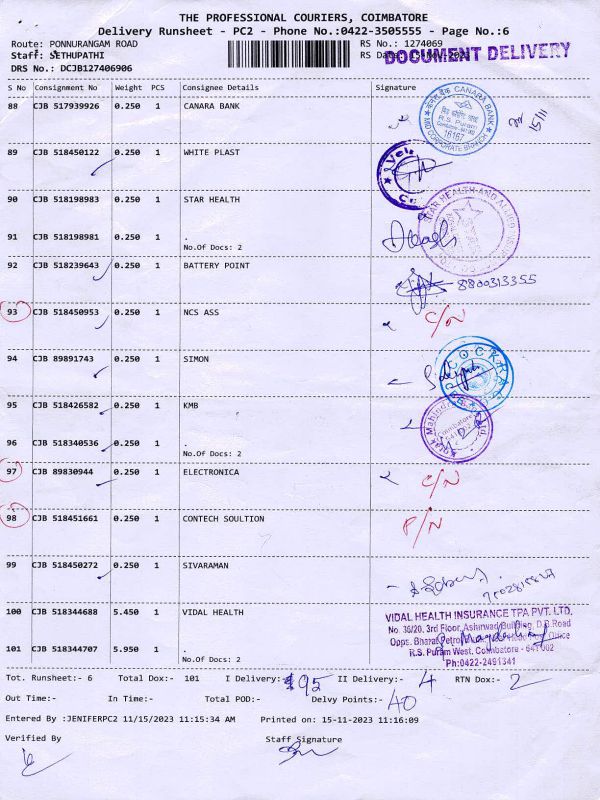 THE PROFESSIONAL COURIERS, COIMBATORE
Delivery Runsheet - PC2 - Phone No.:0422-3505555 - Page No.:6
Route: PONNURANGAM ROAD RS No.: 1274069
Staff: SETHUPATHI RS Da
DOCUMENT DELIVERY
DRS No.: DCJB127406906
S No Consignment No Weight PCS Consignee Details Signature
88 CJB 517939926 0.250 1 CANARA BANK
CANARA BANK
R.S. Puram
16167
MID CORPORATE BRANCH
15/11
89 CJB 518450122 0.250 1 WHITE PLAST
90 CJB 518198983 0.250 1 STAR HEALTH
STAR HEALTH AND ALLIED
91 CJB 518198981 0.250 1 .
No.Of Docs: 2
92 CJB 518239643 0.250 1 BATTERY POINT
8800313355
93 CJB 518450953 0.250 1 NCS ASS
C/N
94 CJB 89891743 0.250 1 SIMON
95 CJB 518426582 0.250 1 KMB
96 CJB 518340536 0.250 1 .
No.Of Docs: 2
97 CJB 89830944 0.250 1 ELECTRONICA
C/N
98 CJB 518451661 0.250 1 CONTECH SOULTION
P/N
99 CJB 518450272 0.250 1 SIVARAMAN
100 CJB 518344688 5.450 1 VIDAL HEALTH
VIDAL HEALTH INSURANCE TPA PVT. LTD.
No. 36/20, 3rd Floor, Asirwad Building, D.B.Road
Opps. Bharat Petrol Head Office
R.S. Puram West, Coimbatore - 641 002
Ph:0422-2491341
101 CJB 518344707 5.950 1 .
No.Of Docs: 2
Tot. Runsheet:- 6 Total Dox:- 101 I Delivery:- 95 II Delivery:- 4 RTN Dox:- 2
Out Time:- In Time:- Total POD:- Delvy Points:- 40
Entered By :JENIFERPC2 11/15/2023 11:15:34 AM Printed on: 15-11-2023 11:16:09
Verified By Staff Signature